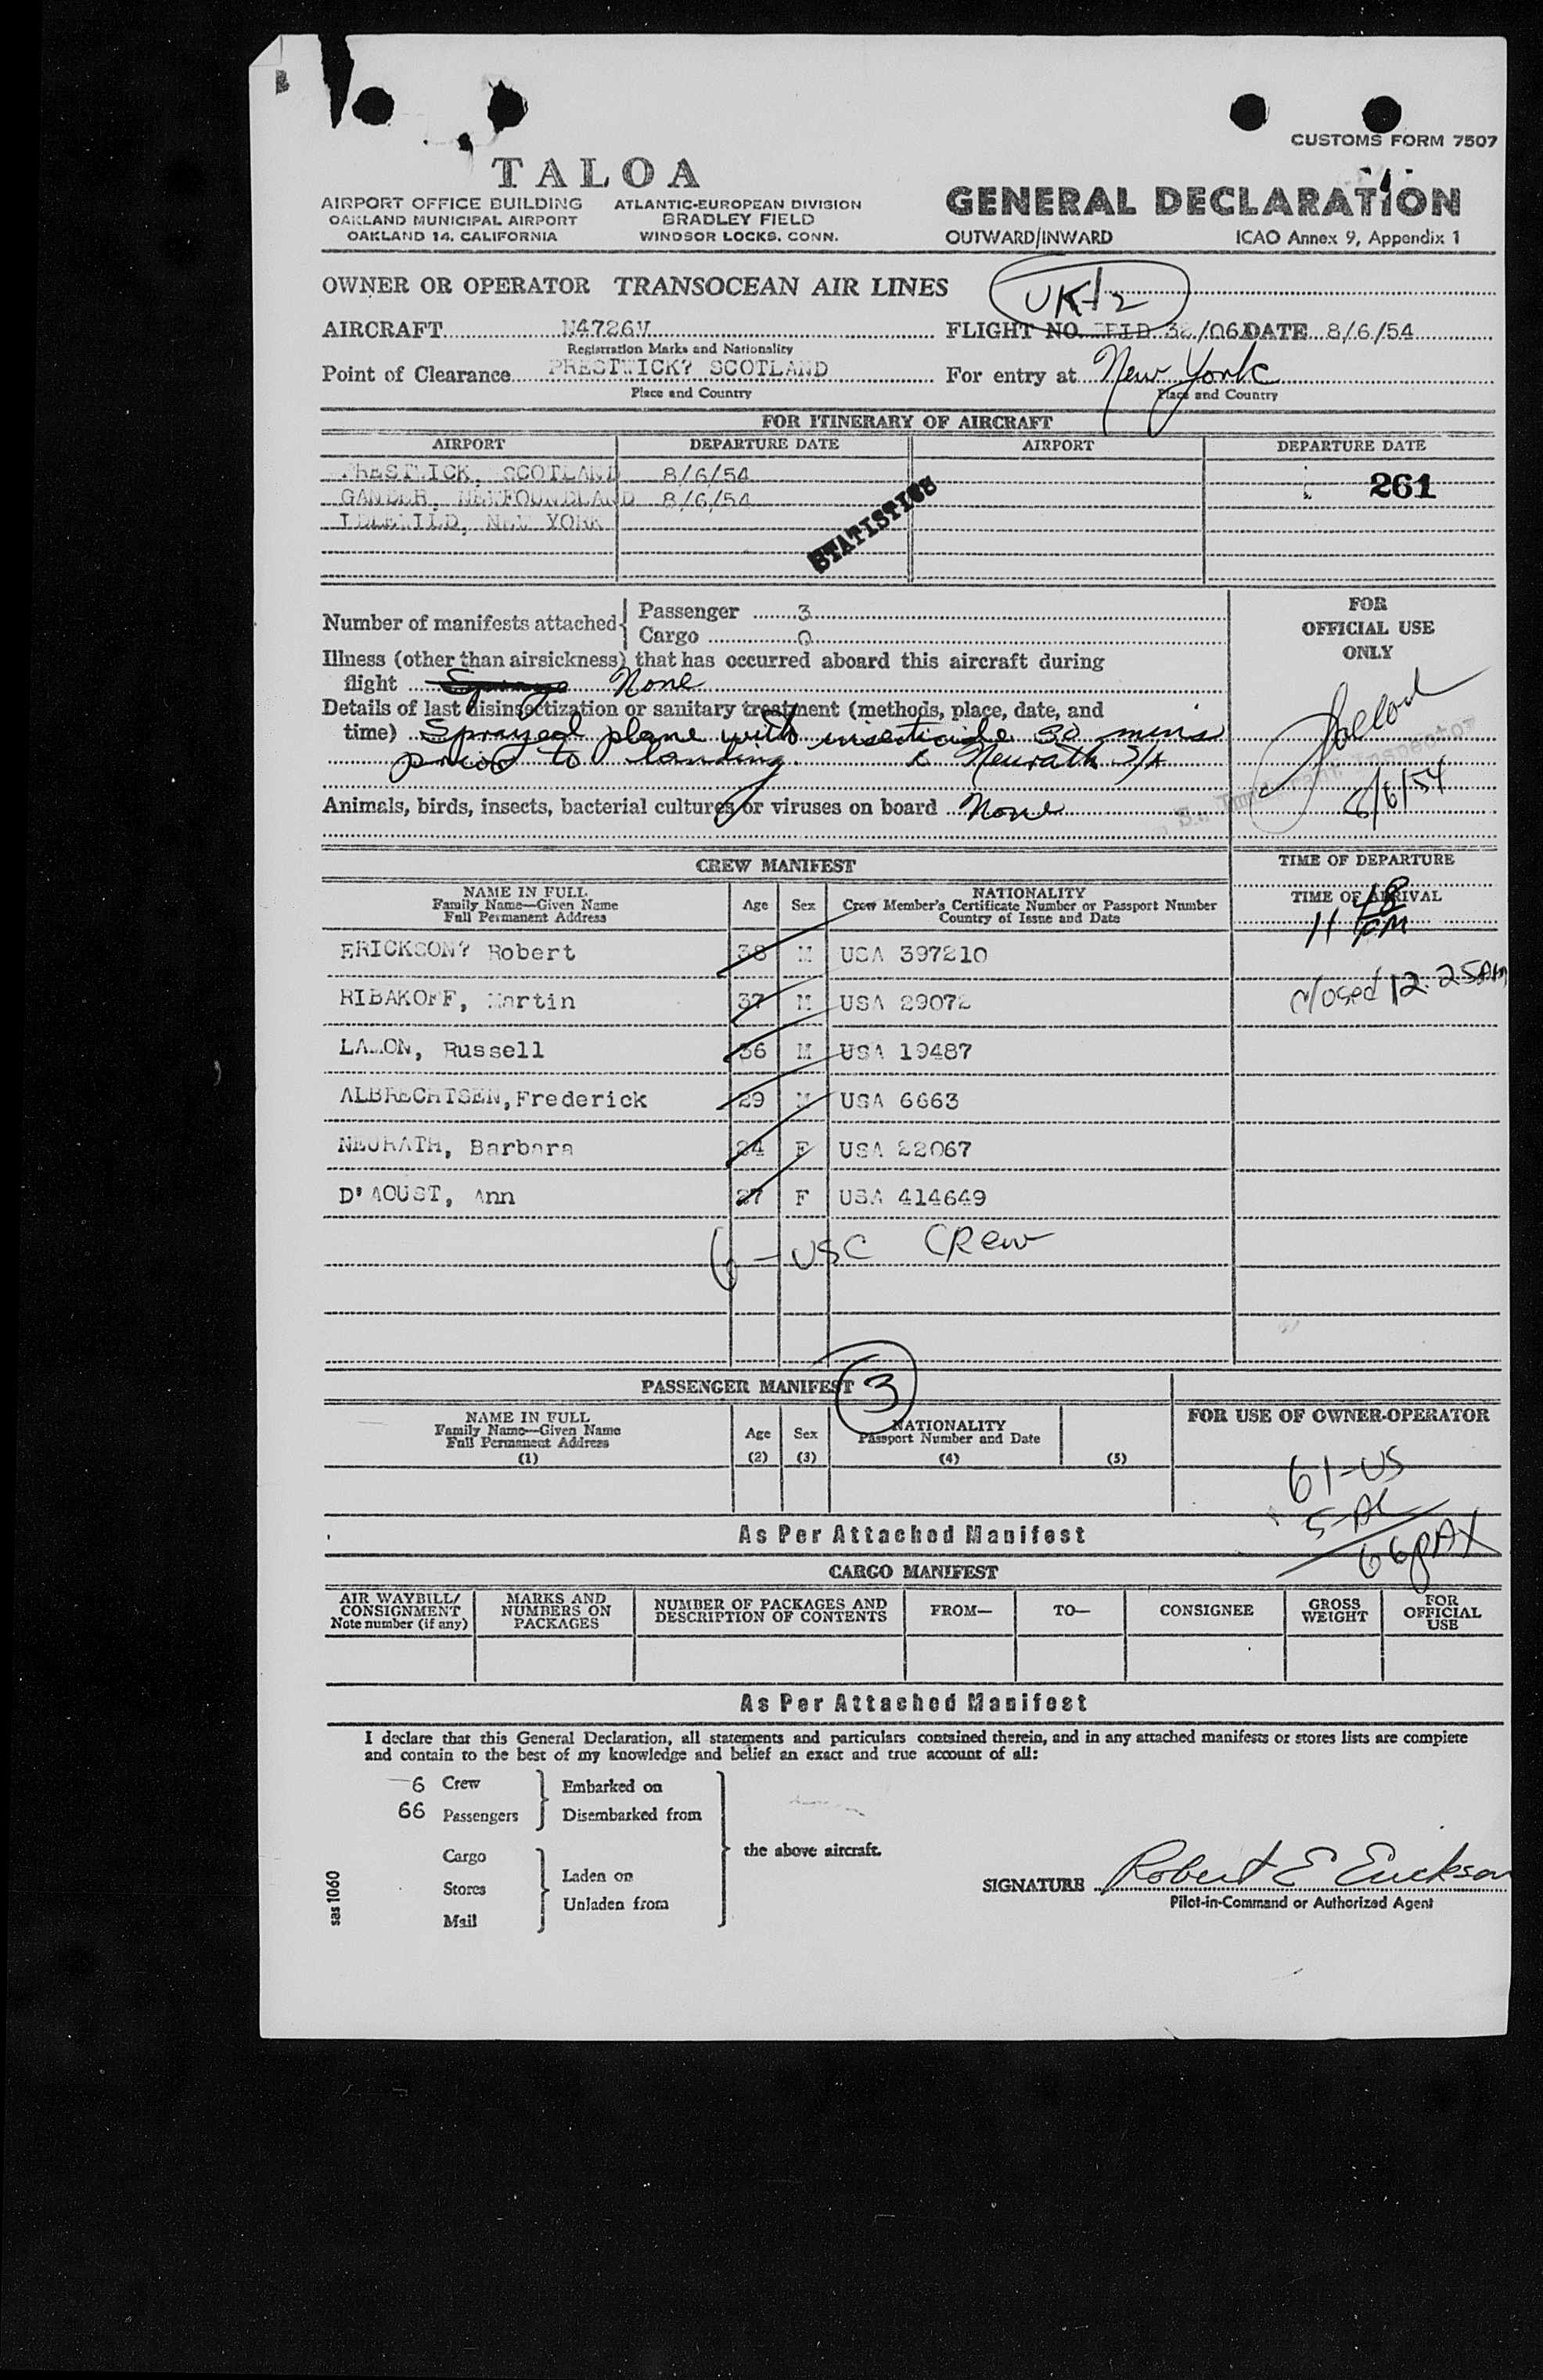 CUSTOMS FORM 7507
TALOA
AIRPORT OFFICE BUILDING
OAKLAND MUNICIPAL AIRPORT
OAKLAND 14, CALIFORNIA
ATLANTIC-EUROPEAN DIVISION
BRADLEY FIELD
WINDSOR LOCKS, CONN.
GENERAL DECLARATION
OUTWARD/INWARD ICAO Annex 9, Appendix 1
OWNER OR OPERATOR TRANSOCEAN AIR LINES
UK-12
AIRCRAFT N4726V FLIGHT NO. /06 DATE 8/6/54
Registration Marks and Nationality
Point of Clearance PRESTWICK? SCOTLAND For entry at New York
Place and Country Place and Country
FOR ITINERARY OF AIRCRAFT
AIRPORT DEPARTURE DATE AIRPORT DEPARTURE DATE
PRESTWICK, SCOTLAND 8/6/54
261
GANDER, NEWFOUNDLAND 8/6/54
IDLEWILD, NEW YORK
STATISTICS
Number of manifests attached Passenger 3
Cargo 0
FOR
OFFICIAL USE
ONLY
Illness (other than airsickness) that has occurred aboard this aircraft during
flight None
Details of last disinsectization or sanitary treatment (methods, place, date, and
time) Sprayed plane with insecticide 30 mins
prior to landing. Neurath
Immigrant Inspector
8/6/54
Animals, birds, insects, bacterial cultures or viruses on board None
CREW MANIFEST
TIME OF DEPARTURE
NAME IN FULL
Family Name—Given Name
Full Permanent Address
Age Sex
NATIONALITY
Crew Member's Certificate Number or Passport Number
Country of Issue and Date
TIME OF ARRIVAL
11 48 PM
ERICKSON? Robert 38 M USA 397210
closed 12:25AM
RIBAKOFF, Martin 37 M USA 29072
LAMON, Russell 36 M USA 19487
ALBRECHTSEN, Frederick 29 M USA 6663
NEURATH, Barbara 24 F USA 22067
D'AOUST, Ann 27 F USA 414649
6 - USC Crew
PASSENGER MANIFEST 3
NAME IN FULL
Family Name—Given Name
Full Permanent Address
(1)
Age
(2)
Sex
(3)
NATIONALITY
Passport Number and Date
(4) (5)
FOR USE OF OWNER-OPERATOR
61-US
5-AL
66 PAX
As Per Attached Manifest
CARGO MANIFEST
AIR WAYBILL/
CONSIGNMENT
Note number (if any)
MARKS AND
NUMBERS ON
PACKAGES
NUMBER OF PACKAGES AND
DESCRIPTION OF CONTENTS
FROM— TO— CONSIGNEE
GROSS
WEIGHT
FOR
OFFICIAL
USE
As Per Attached Manifest
I declare that this General Declaration, all statements and particulars contained therein, and in any attached manifests or stores lists are complete
and contain to the best of my knowledge and belief an exact and true account of all:
6 Crew Embarked on
66 Passengers Disembarked from
the above aircraft.
Cargo
Stores
Mail
Laden on
Unladen from
SIGNATURE Robert E Erickson
Pilot-in-Command or Authorized Agent
sas 1060